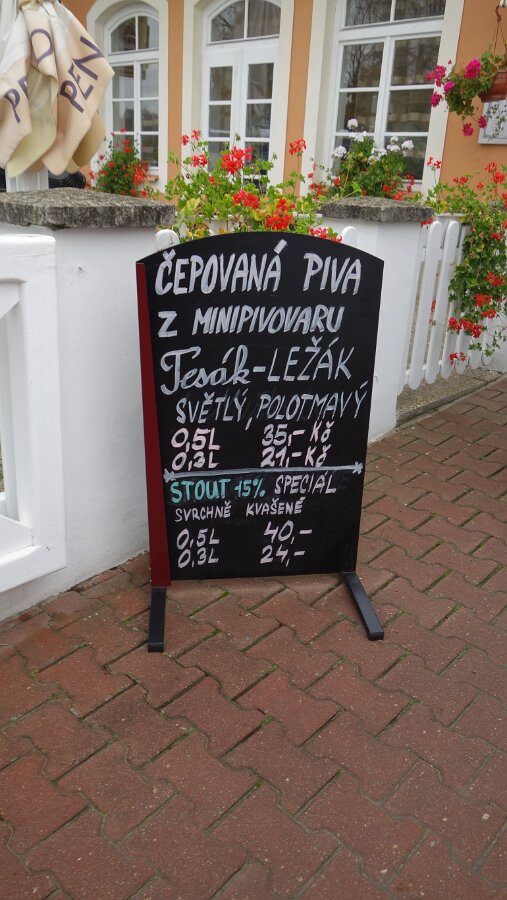 ČEPOVANÁ PIVA
Z MINIPIVOVARU
Tesák-LEŽÁK
SVĚTLÝ, POLOTMAVÝ
0,5L 35,- Kč
0,3L 21,- Kč
STOUT 15% SPECIÁL
SVRCHNĚ KVAŠENÉ
0,5L 40,-
0,3L 24,-